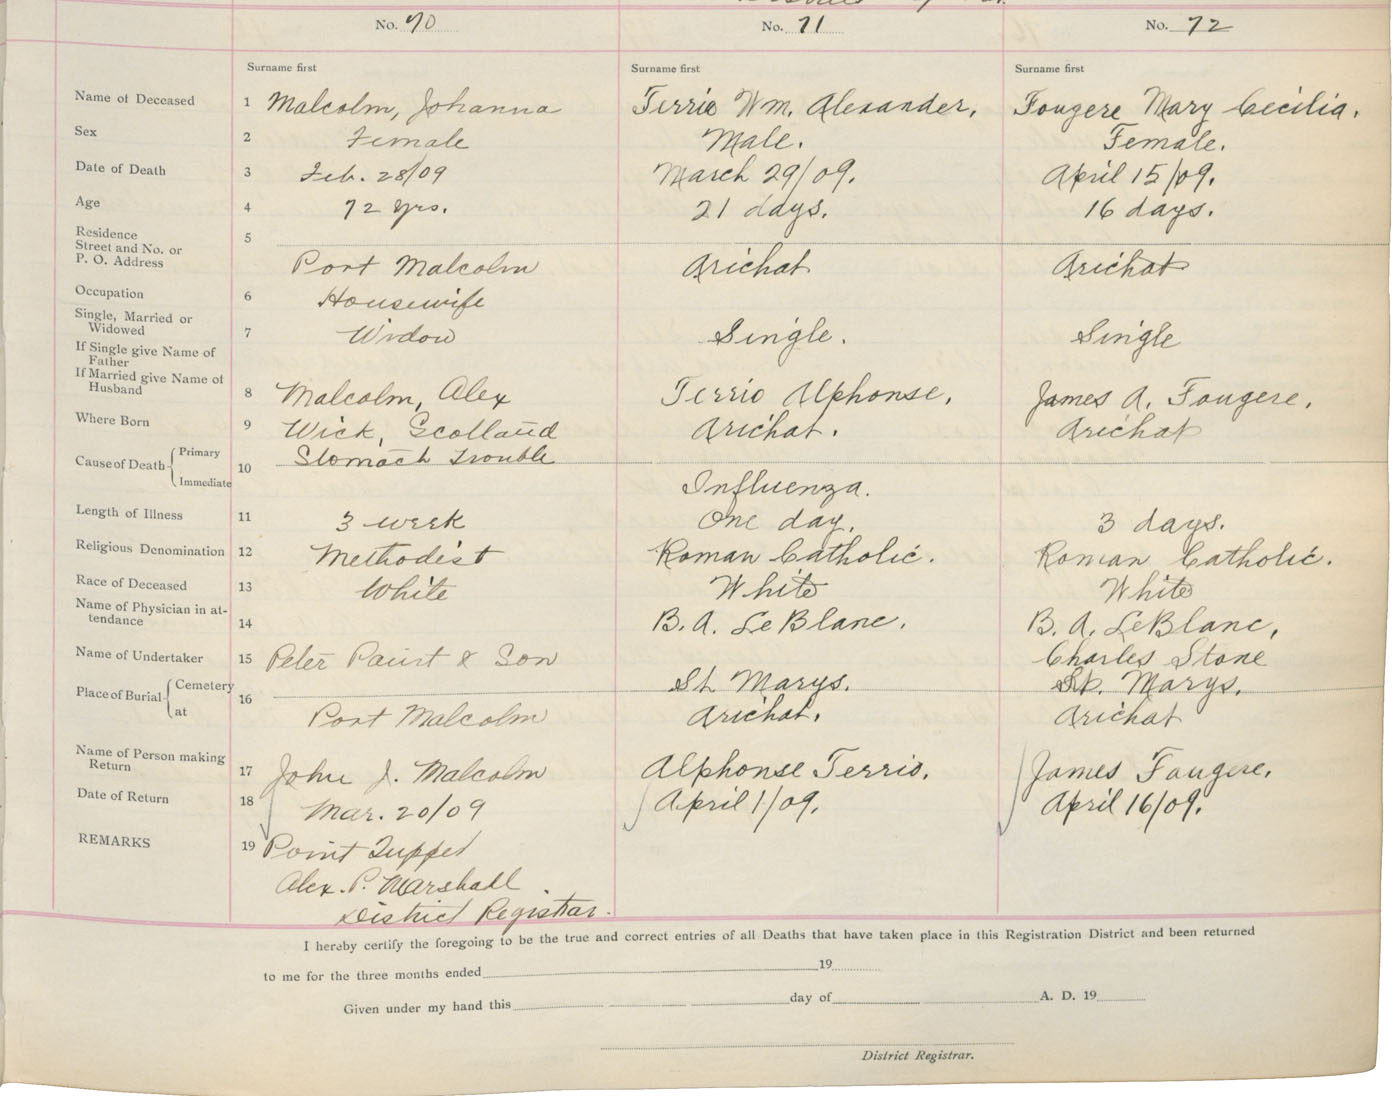 No. 70 No. 71 No. 72
Surname first Surname first Surname first
Name of Deceased 1 Malcolm, Johanna Terrio Wm. Alexander, Fougere Mary Cecilia.
Sex 2 Female Male. Female.
Date of Death 3 Feb. 28/09 March 29/09. April 15/09.
Age 4 72 yrs. 21 days. 16 days.
Residence
Street and No. or 5
P. O. Address Port Malcolm Arichat Arichat
Occupation 6 Housewife
Single, Married or
Widowed 7 Widow Single. Single
If Single give Name of
Father
If Married give Name of
Husband 8 Malcolm, Alex Terrio Alphonse, James A. Fougere,
Where Born 9 Wick, Scotland Arichat. Arichat
Cause of Death Primary Stomach Trouble
10
Immediate Influenza.
Length of Illness 11 3 week One day. 3 days.
Religious Denomination 12 Methodist Roman Catholic. Roman Catholic.
Race of Deceased 13 White White White
Name of Physician in at-
tendance 14 B. A. LeBlanc. B. A. LeBlanc,
Name of Undertaker 15 Peter Paint & Son Charles Stone
Place of Burial Cemetery 16 St. Marys. St. Marys.
at Port Malcolm Arichat. Arichat
Name of Person making
Return 17 John J. Malcolm Alphonse Terrio. James Fougere.
Date of Return 18 Mar. 20/09 April 1/09. April 16/09.
REMARKS 19 Point Tupper
Alex. P. Marshall
District Registrar.
I hereby certify the foregoing to be the true and correct entries of all Deaths that have taken place in this Registration District and been returned
to me for the three months ended 19
Given under my hand this day of A. D. 19
District Registrar.